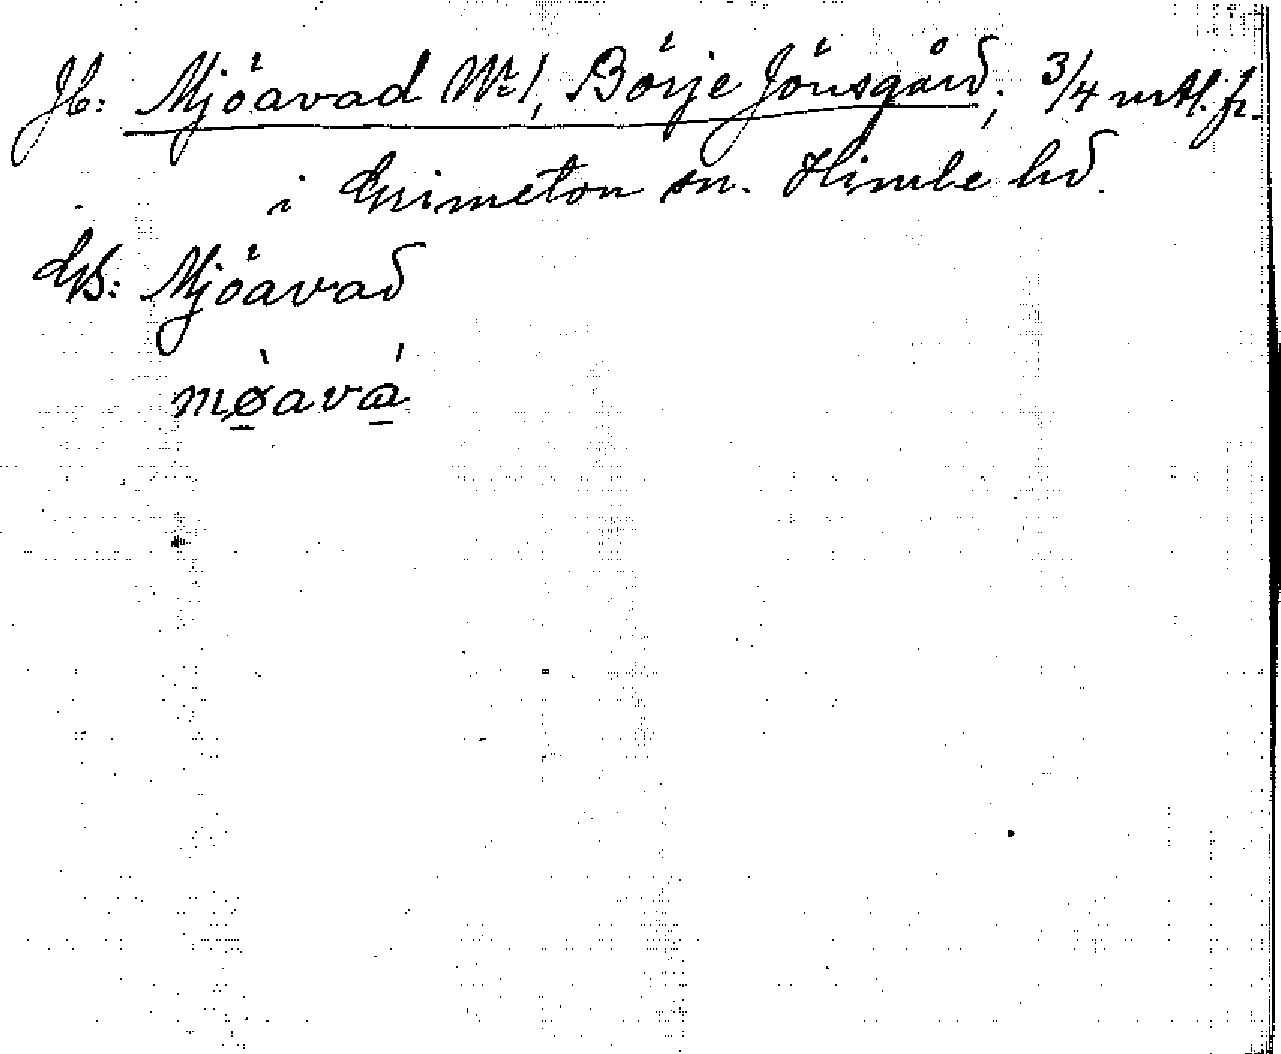 Jb: Mjöavad Nr 1, Börje Jönsgård; 3/4 mtl. fr.
i Grimeton sn. Himle hd.
GS: Mjöavad
mø̠̀avá̠